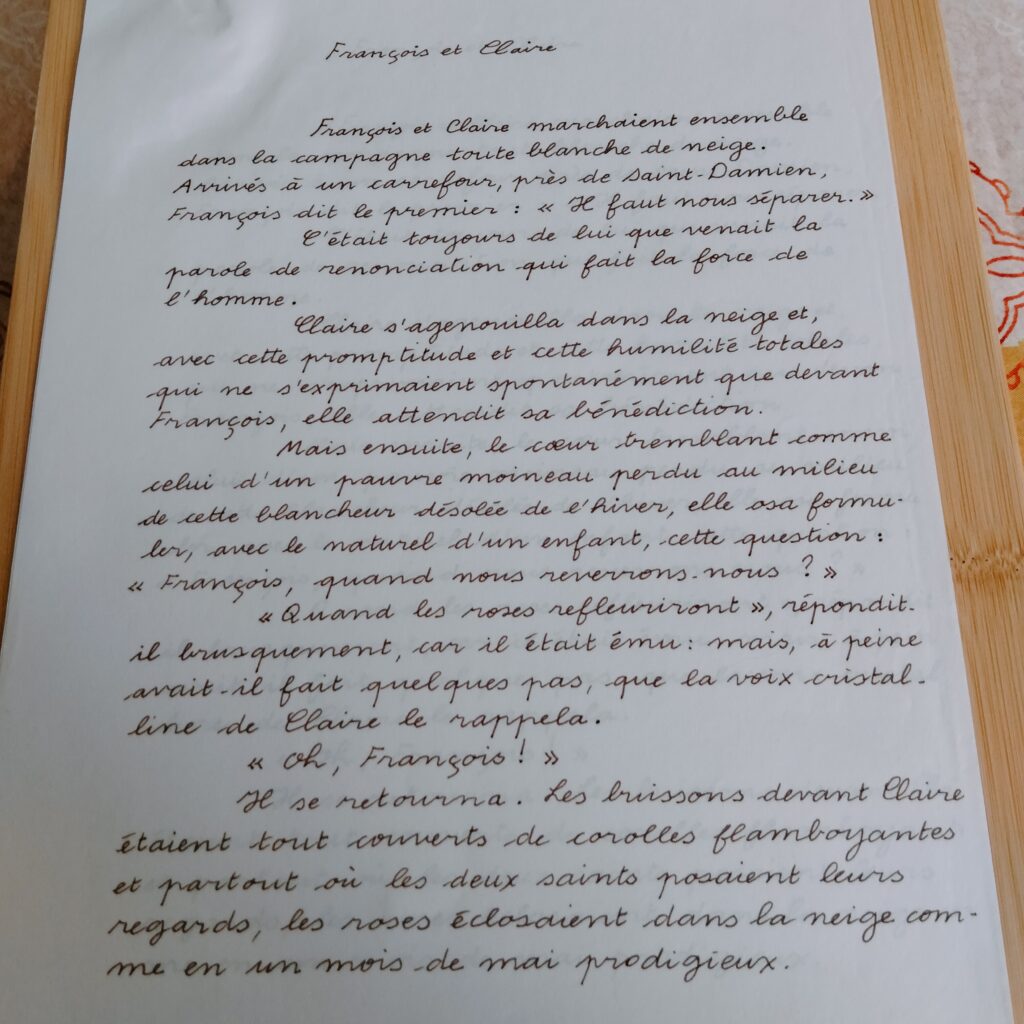 François et Claire
François et Claire marchaient ensemble
dans la campagne toute blanche de neige.
Arrivés à un carrefour, près de Saint-Damien,
François dit le premier : « Il faut nous séparer. »
C'était toujours de lui que venait la
parole de renonciation qui fait la force de
l'homme.
Claire s'agenouilla dans la neige et,
avec cette promptitude et cette humilité totales
qui ne s'exprimaient spontanément que devant
François, elle attendit sa bénédiction.
Mais ensuite, le cœur tremblant comme
celui d'un pauvre moineau perdu au milieu
de cette blancheur désolée de l'hiver, elle osa formu-
ler, avec le naturel d'un enfant, cette question :
« François, quand nous reverrons-nous ? »
« Quand les roses refleuriront », répondit-
il brusquement, car il était ému : mais, à peine
avait-il fait quelques pas, que la voix cristal-
line de Claire le rappela.
« Oh, François ! »
Il se retourna. Les buissons devant Claire
étaient tout couverts de corolles flamboyantes
et partout où les deux saints posaient leurs
regards, les roses éclosaient dans la neige com-
me en un mois de mai prodigieux.